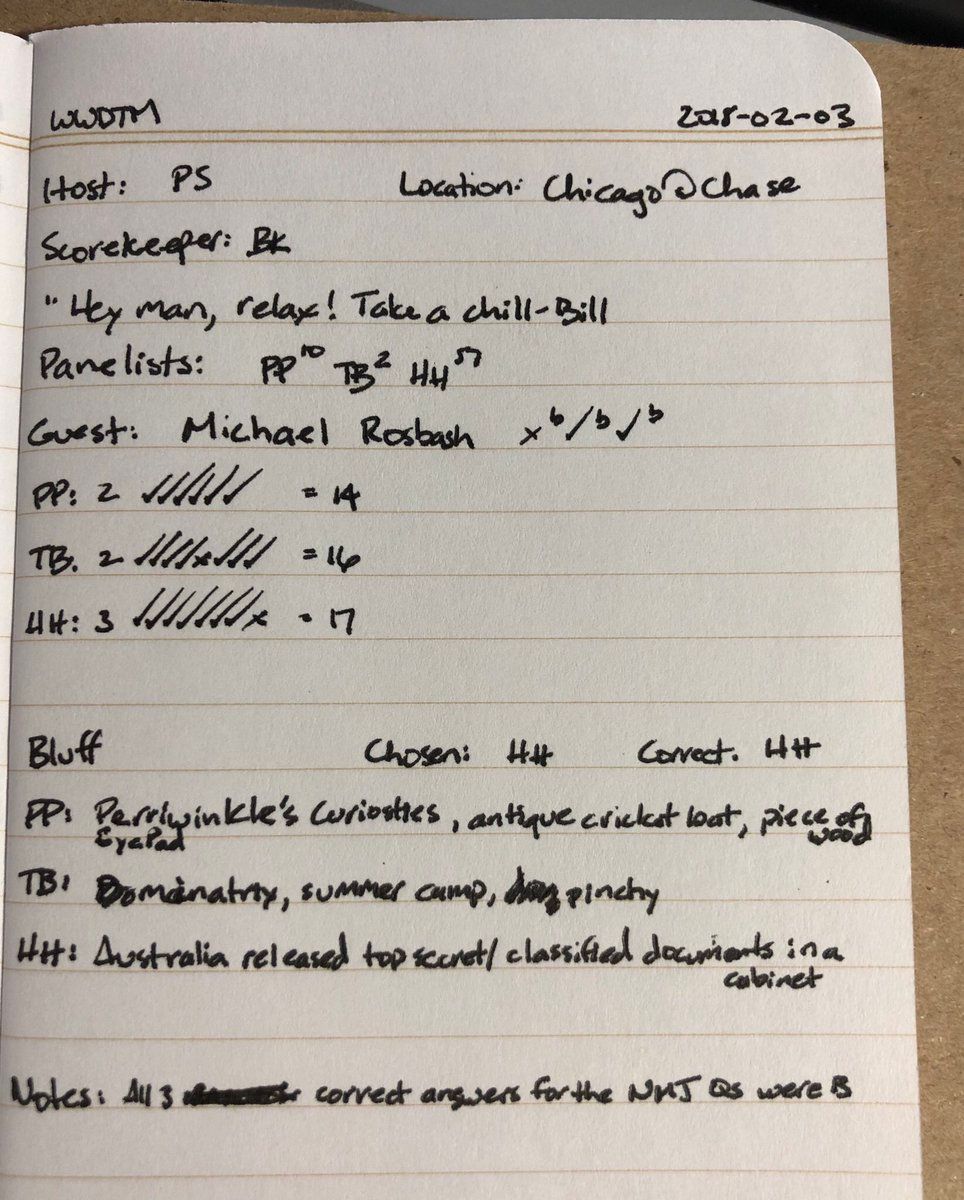 WWDTM 2018-02-03
Host: PS Location: Chicago@Chase
Scorekeeper: BK
"Hey man, relax! Take a chill-Bill
Panelists: PP¹⁰ TB² HH⁵⁷
Guest: Michael Rosbash x ᵇ/ᵇ✓ᵇ
PP: 2 ✓✓✓✓✓✓ = 14
TB. 2 ✓✓✓✓x✓✓✓ = 16
HH: 3 ✓✓✓✓✓✓✓x = 17
Bluff Chosen: HH Correct. HH
PP: Perriwinkle's Curiosties, antique cricket boat, piece of wood
EyePad
TB: Dominatrix, summer camp, pinchy
HH: Australia released top secret/classified documents in a
cabinet
Notes: All 3 correct answers for the NMJ Qs were B